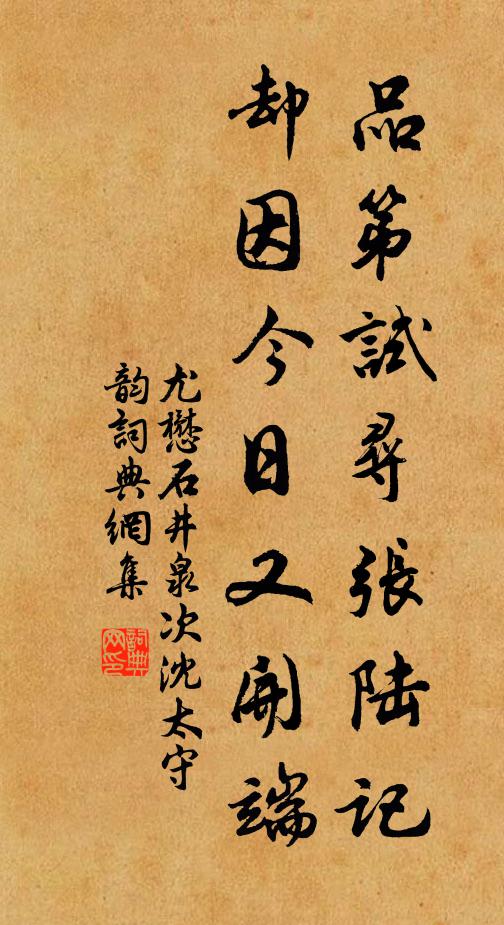 品第試尋張陆記
却因今日又開端
尤懋石井泉次沈太守
韵詞典網集
詞典网印